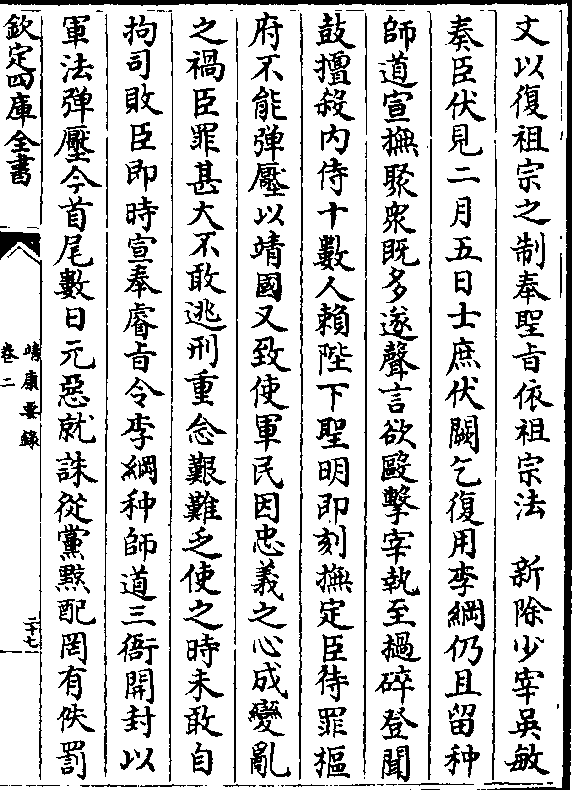 文以復祖宗之制奉聖㫖依祖宗法　新除少宰吳敏
奏臣伏見二月五日士庶伏闕乞復用李綱仍且留种
師道宣撫聚衆既多遂聲言欲毆擊宰執至撾碎登聞
鼓擅殺内侍十數人賴陛下聖明即刻撫定臣待罪樞
府不能彈壓以靖國又致使軍民因忠義之心成變亂
之禍臣罪甚大不敢逃刑重念艱難乏使之時未敢自
拘司敗臣即時宣奉睿㫖令李綱种師道三衙開封以
軍法彈壓今首尾數日元惡就誅從黨黥配罔有佚罰
欽定四庫全書
靖康要錄
卷二
二十七